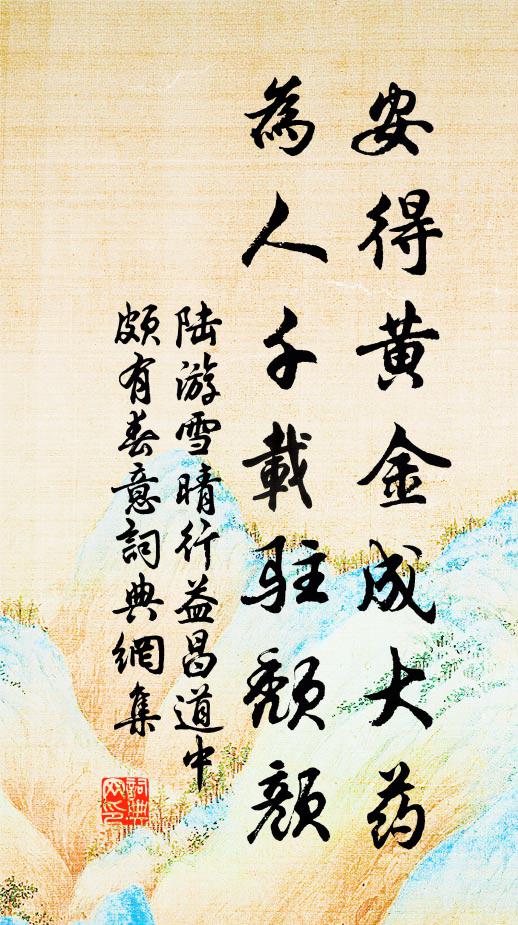 安得黄金成大药
為人千載駐頹顏
陆游雪晴行益昌道中
頗有春意詞典網集
詞典